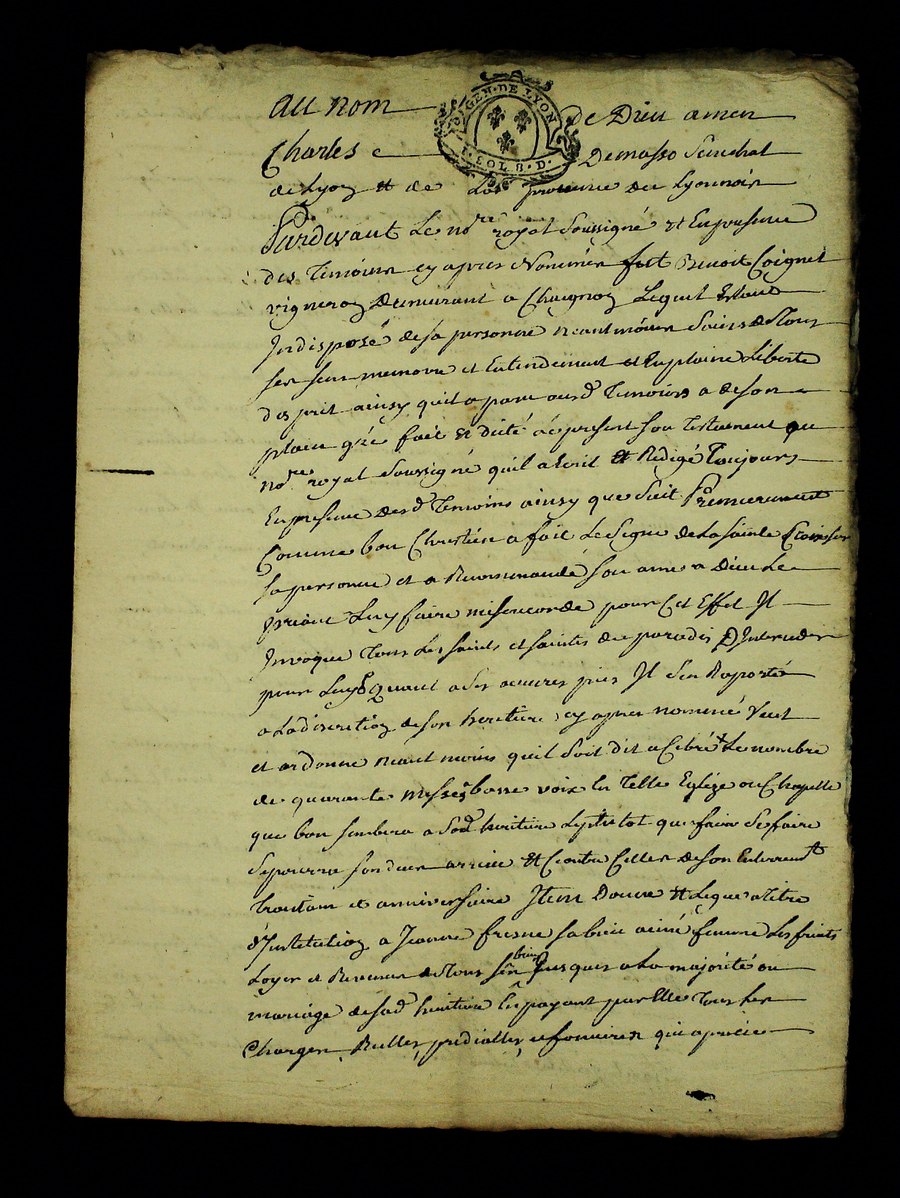 au nom de Dieu amen
GEN·DE LYON
1·SOL 8·D·
Charles Demasso Senechal
de Lyon et de La province du Lyonnois
Pardevant Le nore royal soussigné et En presence
des Temoins cy apres Nommés fut Benoit Coignet
vigneron Demeurant a Chaignon Lequel Estant
Indisposé de sa personne neantmoins Sains de Tous
ses sens memoire et Entendement et En plaine Liberte
desprit ainsy quil a paru ausd Temoins a de son
plain gré fait et dicté le present son Testament au
nore royal soussigné quil a Ecrit et Redigé Toujours
En presence desd Temoins ainsy que suit Premierement
Comme bon Chrestien a fait Le Signe de La sainte Croix sur
sa personne et a Recommandé son ame a Dieu Le
priant Luy faire misericorde pour Cet Effet Il
Invoque Tous Les saints et saintes du paradis D'Interceder
pour Luy Quant a ses oeuvres pies Il s'en Raporte
a La discretion de son heritiere cy apres nommée Veut
et ordonne neantmoins quil soit dit a Celebré Le nombre
de quarante Messes basse voix En Telle Eglize ou Chapelle
que bon semblera a sad heritiere Le plutot que faire se faire
se pourra son deces arrivé Et Contre Celles de son Enterremt
trantain et anniversaire Item Donne et Legue a titre
d'Institution a Jeanne fresne sa bien aimé femme Les fruits
Loyer et Revenus de Tous ses biens Jusques a La majorité ou
mariage de sad heritiere En payant par Elle Tous Les
Charges Reelles predialles et foncieres qui a